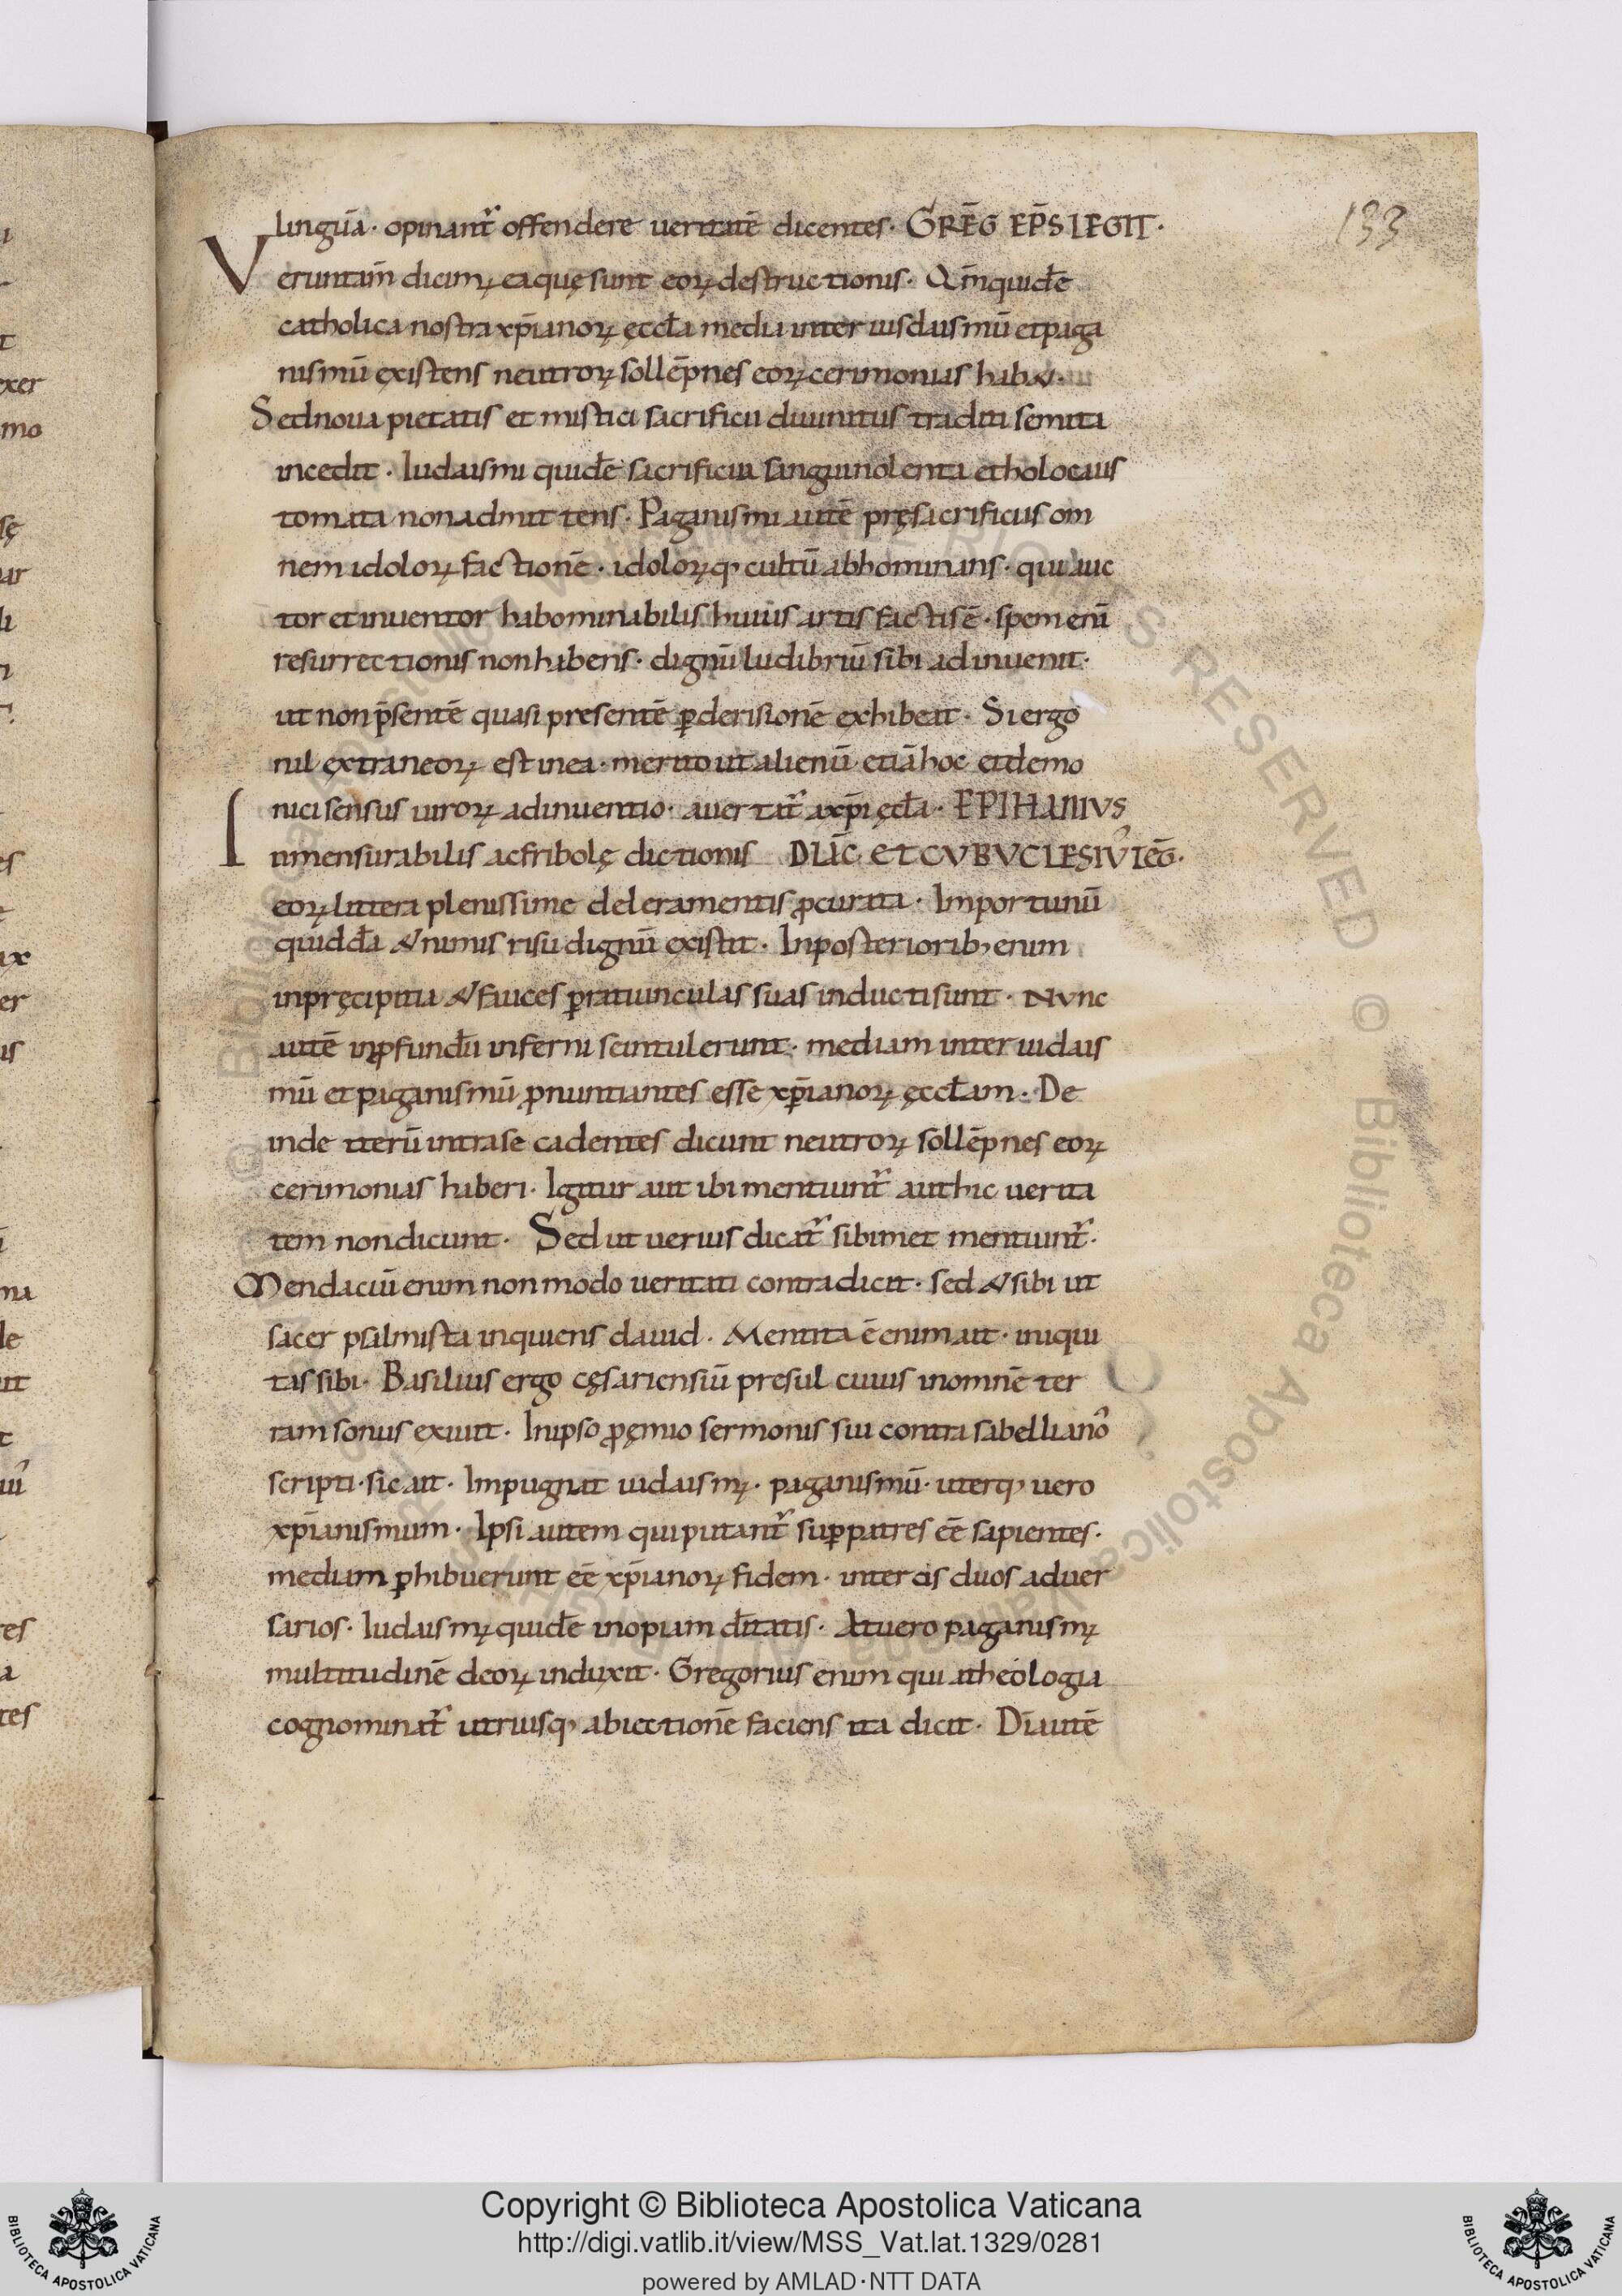 133
linguā· opinant᷑ offendere ueritatē dicentes· GREḠ EP̄S LEGIT·
Veruntam̄ dicimꝰ ea quę sunt eoꝝ destructionis· Qm̄ quidē
catholica nostra xp̄ianoꝝ ęccła media inter iusdaismū et paga
nismū ęxistens neutroꝝ sollēpnes eoꝝ cerimonias hab&·
Sed noua pietatis et mistici sacrificii diuinitus traditi semita
incedit· Iudaismi quidē sacrificia sanguinolenta et holocaus
tomata non admittens· Paganismi autē pręsacrificiis om
nem idoloꝝ factionē· idoloꝝq; cultū abhominans· qui auc
tor et inuentor habominabilis huius artis factis ē· spem enī
resurrectionis non habens· dignū ludibriū sibi adinuenit·
ut non p̄sentē quasi presentē ꝑ derisionē exhibeat· Si ergo
nil extraneoꝝ est in ea· merito ut alienū etiā hoc et demo
nici sensus uiroꝝ adinuentio· auertat᷑ a xp̄i ęccła· EPIHANIVS
Inmensurabilis ac fribolę dictionis DIAC̄ ET CVBVCLESIVˀ LEḠ·
eoꝝ littera plenissime deleramentis ꝓcurata· Importunū
quiddā & nimis risu dignū existit· In posteriorib; enim
in pręcipitia & fauces ꝑ ratiunculas suas inducti sunt· Nvnc
autē in ꝓfundū inferni se intulerunt· mediam inter iudais
mū et paganismū ꝓnuntiantes esse xp̄ianoꝝ ęccłam· De
inde iterū intra se cadentes dicunt neutroꝝ sollēpnes eoꝝ
cerimonias haberi· Igitur aut ibi mentiunt᷑ aut hic uerita
tem non dicunt· Sed ut uerius dicat᷑ sibimet mentiunt᷑·
Mendaciū enim non modo ueritati contradicit· sed & sibi ut
sacer psalmista inquiens dauid· Mentita ē enim ait· iniqui
tas sibi· Basilius ergo cęsariensiū presul cuius in omnē ter
ram sonus exiuit· In ipso ꝓęmio sermonis sui contra sabellianoˀ
scripti· sic ait· Impugnat iudaismꝰ· paganismū· uterq; uero
xp̄ianismum· Ipsi autem qui putant᷑ suꝑ patres eē sapientes·
medium ꝑhibuerunt eē xp̄ianoꝝ fidem· inter eis duos aduer
sarios· Iudaismꝰ quidē inopiam dītatis· At uero paganismꝰ
multitudinē deoꝝ induxit· Gregorius enim qui a theologia
cognominat᷑ utriusq; abiectionē faciens ita dicit· Dī autē
exer
mo
sę
ar
li
es
ax
er
is
na
le
res
a
tes
© Biblioteca Apostolica Vaticana ALL RIGHTS RESERVED
Copyright © Biblioteca Apostolica Vaticana
http://digi.vatlib.it/view/MSS_Vat.lat.1329/0281
powered by AMLAD·NTT DATA
BIBLIOTECA APOSTOLICA VATICANA
BIBLIOTECA APOSTOLICA VATICANA